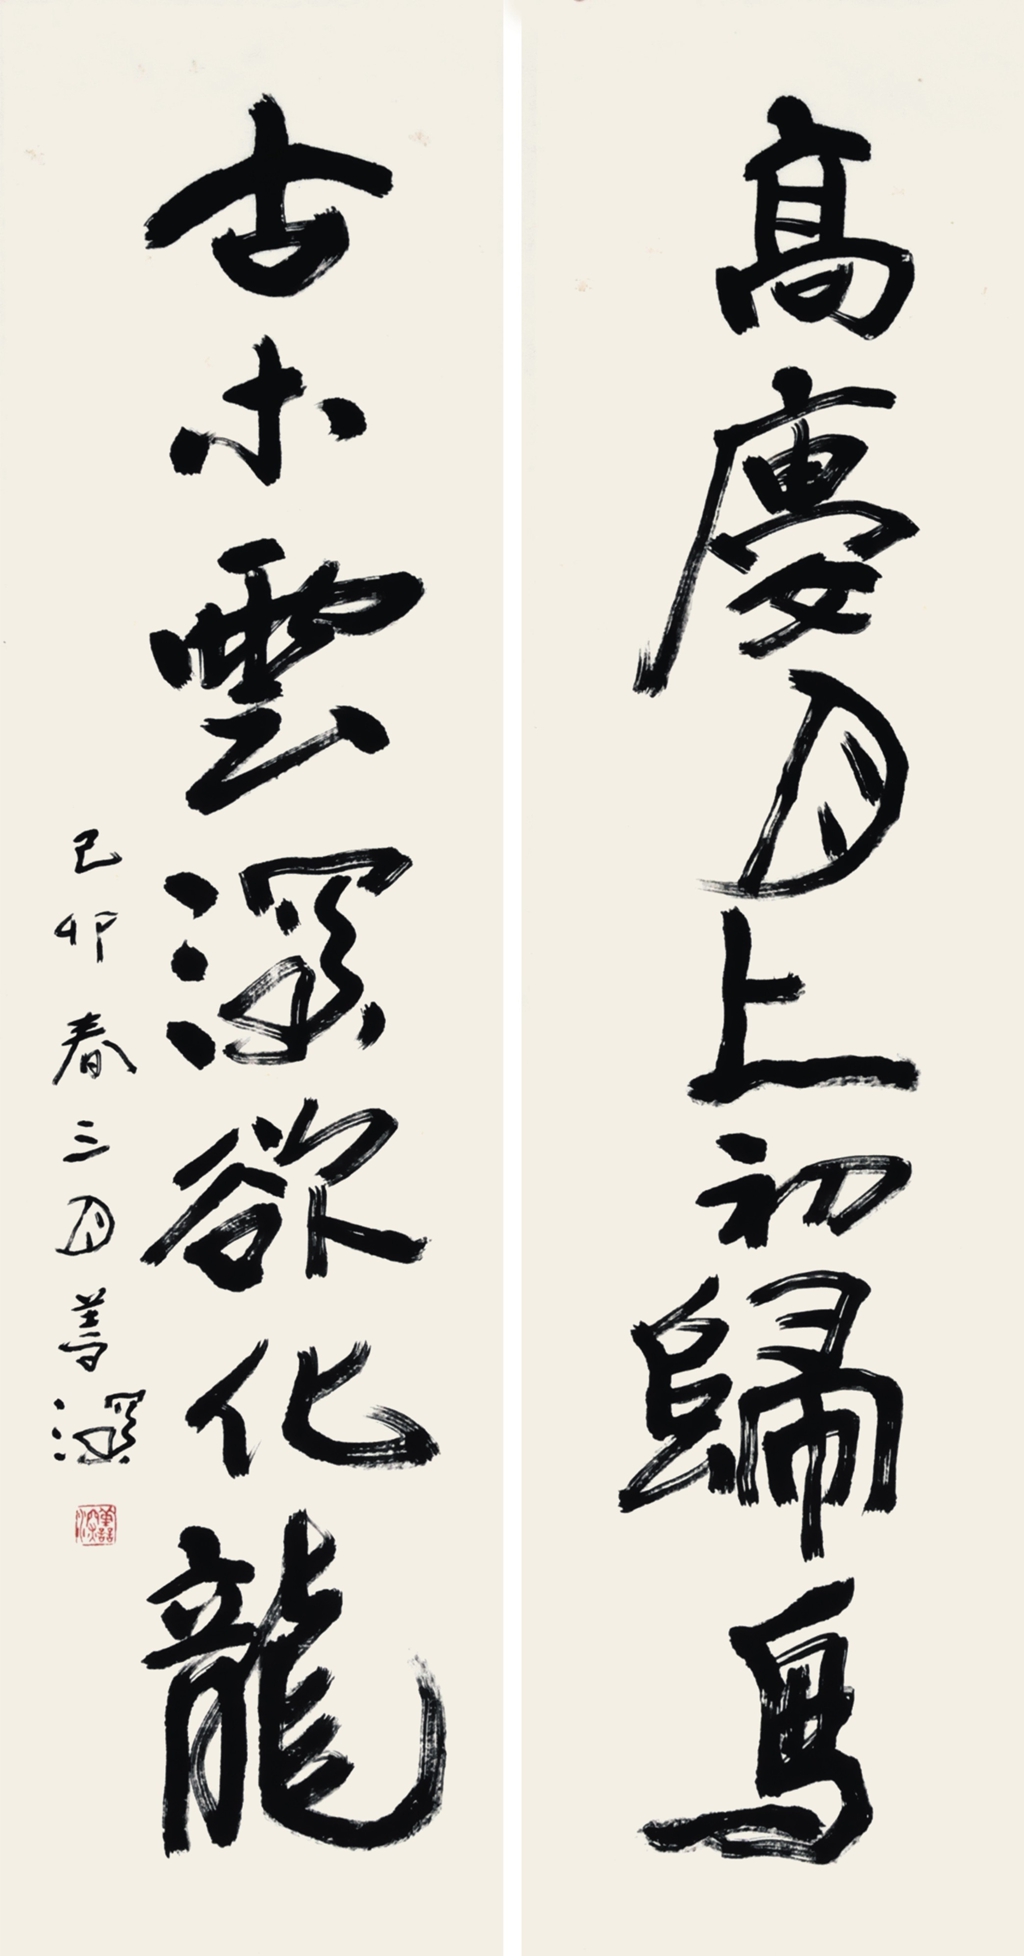 高廔月上初歸鳥
古木雲深欲化龍
己卯春三月善深